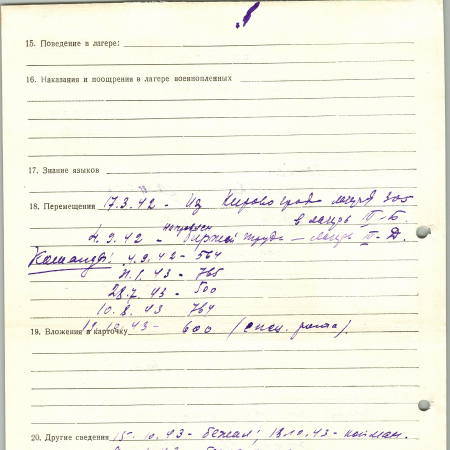 15. Поведение в лагере:
16. Наказания и поощрения в лагере военнопленных
17. Знание языков
18. Перемещения 17.3.42 - Из Кировограда лагерь 305
в лагерь II-Б.
направлен
4.9.42 - биржей труда - лагерь II-Д.
Команды: 4.9.42 - 564
- 765
28.7.43 - 500
10.8.43 764
19. Вложения в карточку 12.10.43 - 600 (спец. рота).
20. Другие сведения 15.10.43 - бежал; 18.10.43 - пойман.